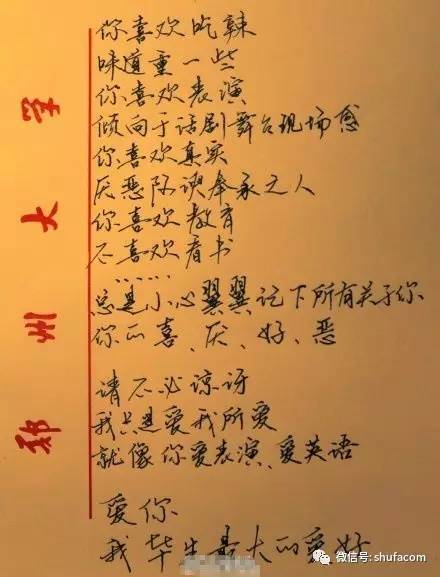 你喜欢吃辣
味道重一些
你喜欢表演
倾向于话剧舞台现场感
你喜欢真实
厌恶阿谀奉承之人
你喜欢教育
不喜欢看书
……
总是小心翼翼记下所有关于你
你的喜、厌、好、恶
请不必惊讶
我只是爱我所爱
就像你爱表演、爱英语
爱你
我毕生最大的爱好
郑州大学
微信号: shufacom